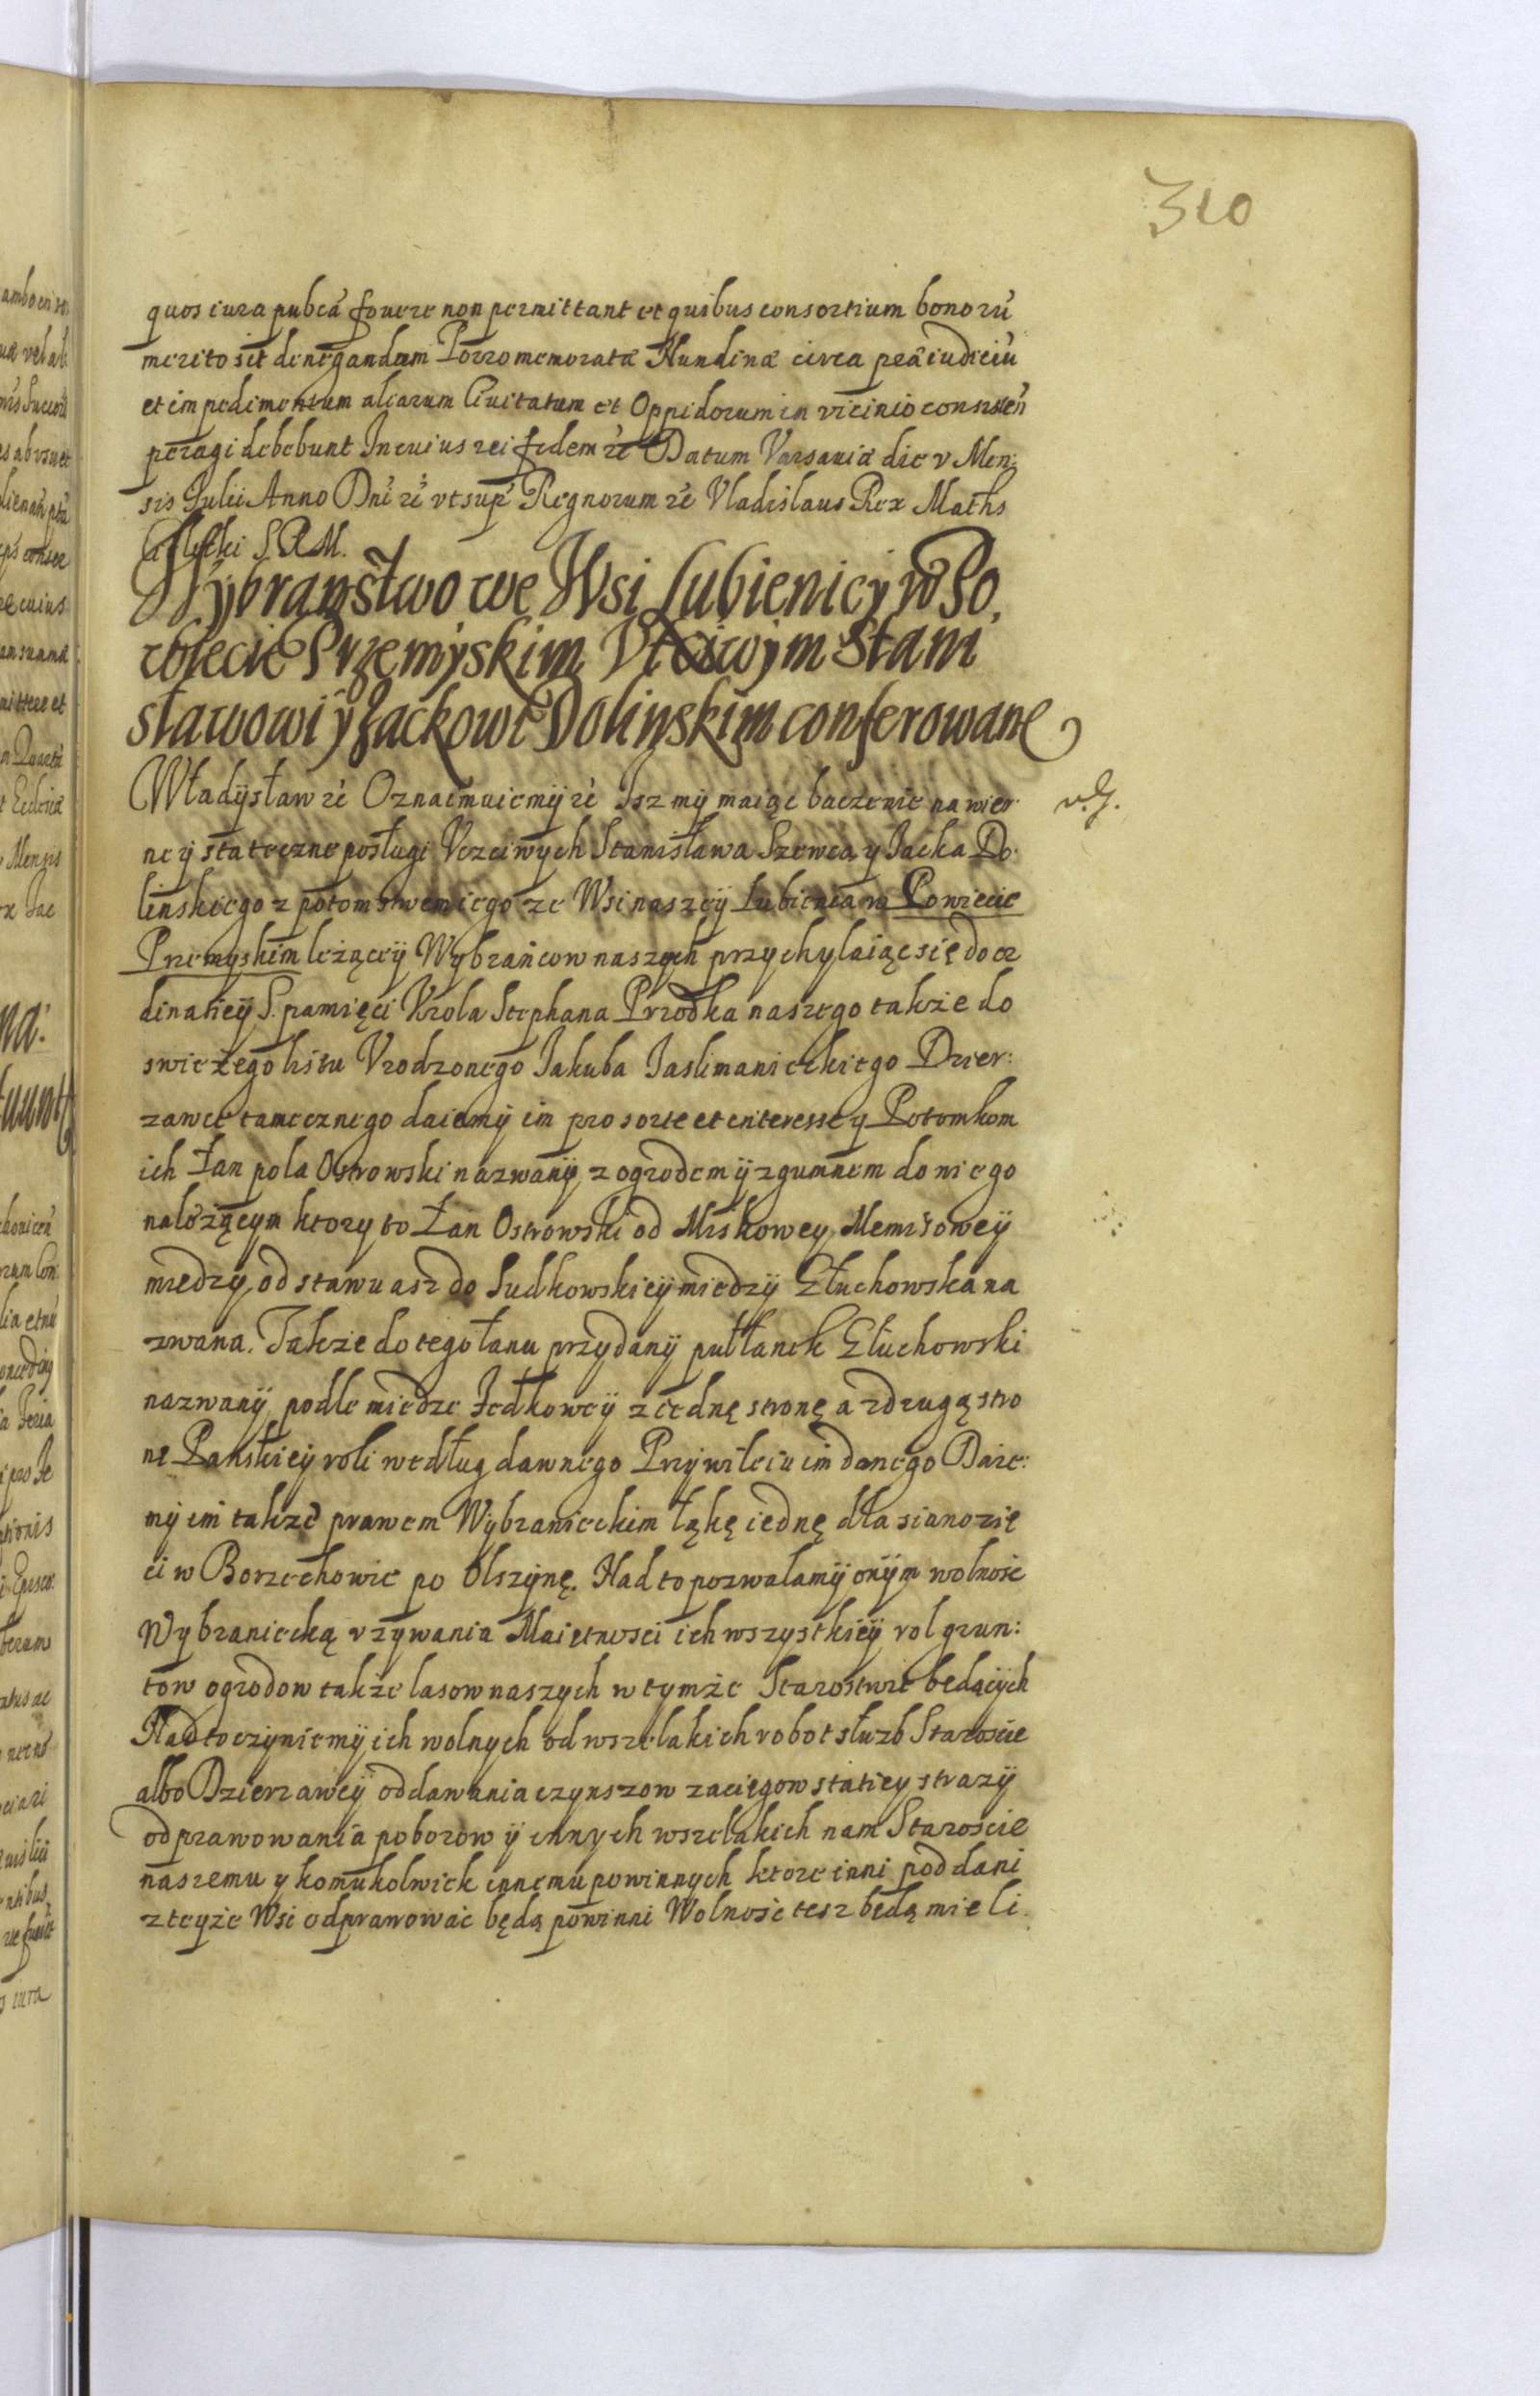 310
quos iura pubca fouere non permittant et quibus consortium bonorũ
merito sit denegandum Porro memoratæ Nundinæ circa præiudiciũ
et impedimentum aliarum Ciuitatum et Oppidorum in vicinio consisteñ
peragi debebunt In cuius rei fidem &c Datum Varsauiæ die v Men:
sis Julii Anno Dni &c vt supe Regnorum &c Vladislaus Rex Maths
S R M.
Wybranstwo we Wsi Lubienicy w Po
wiecie Przemyskim Vtciwym Stani
sławowi y Jackowi Dolinskim conferowane
Władysław &c Oznaimuiemy &c Isz my maiąc baczenie na wier
ne y stateczne posługi Vczciwych Stanisława Szewca y Jacka Do:
linskiego z potomstwem iego ze Wsi naszey Lubienia w Powiecie
Przemyskim leżącey Wybrańcow naszych przychylaiąc się do or
dinatiey S. pamięci Krola Stephana Przodka naszego także do
swieżego listu Vrodzonego Jakuba Jaslimanickiego Dzier:
zawce tamecznego daiemy im pro sorte et interesse y Potomkom
ich Łan pola Ostrowski nazwany z ogrodem y z gumnem do niego
należącym ktory to Łan Ostrowski od Miskowey Memisowey
miedzy od stawu asz do Sudkowskiey miedzy Głuchowska na
zwana. Także do tego łanu przydany pułłanek Głuchowski
nazwany podle miedze Jedkowey z iednę stronę a z drugą stro
nę Pańskiey roli według dawnego Przywileiu im danego Daie:
my im także prawem Wybranieckim łąkę iednę dla sianozię
ci w Borzechowie po Olszynę. Nad to pozwalamy onym wolnosc
Wybraniecką vzywania Maiętnosci ich wszystkiey rol grun:
tow ogrodow także lasow naszych w tymże Starostwie będących
Nad to czyniemy ich wolnych od wszelakich robot służb Staroscie
albo Dzierzawcy oddawania czynszow zaciegow statiey strazy
odprawowania poborow y innych wszelakich nam Staroscie
naszemu y komukolwiek innemu powinnych ktore inni poddani
z teyże Wsi odprawować będą powinni Wolność tesz będą mieli